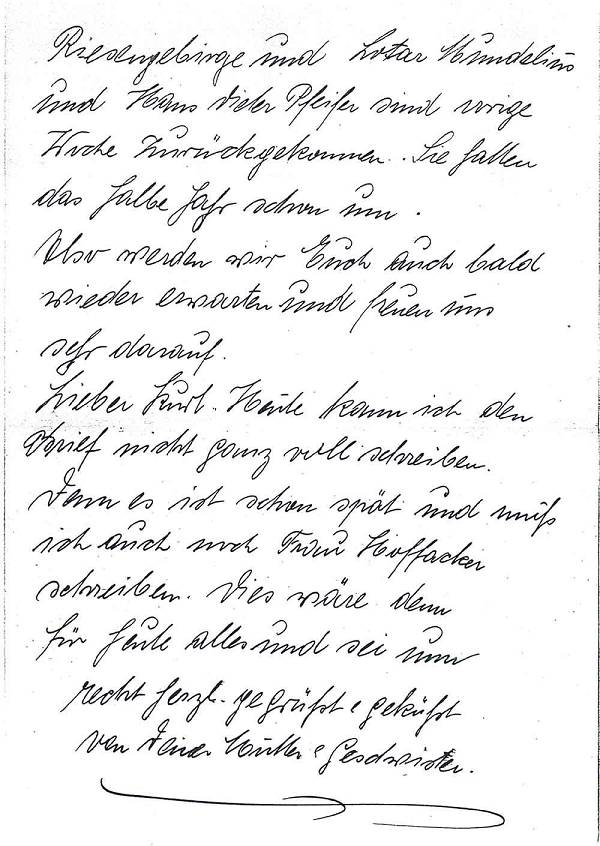 Riesengebirge und Lotar Mundelius
und Hans Dieter Pfeifer sind vorige
Woche zurückgekommen. Sie hatten
das halbe Jahr schon um.
Also werden wir Euch auch bald
wieder erwarten und freuen uns
sehr darauf.
Lieber Kurt. Heute kann ich den
Brief nicht ganz voll schreiben.
Denn es ist schon spät und muß
ich auch noch Frau Hoffacker
schreiben. Dies wäre denn
für heute alles und sei nun
recht herzl. gegrüßt & geküßt
von Deiner Mutter & Geschwister.